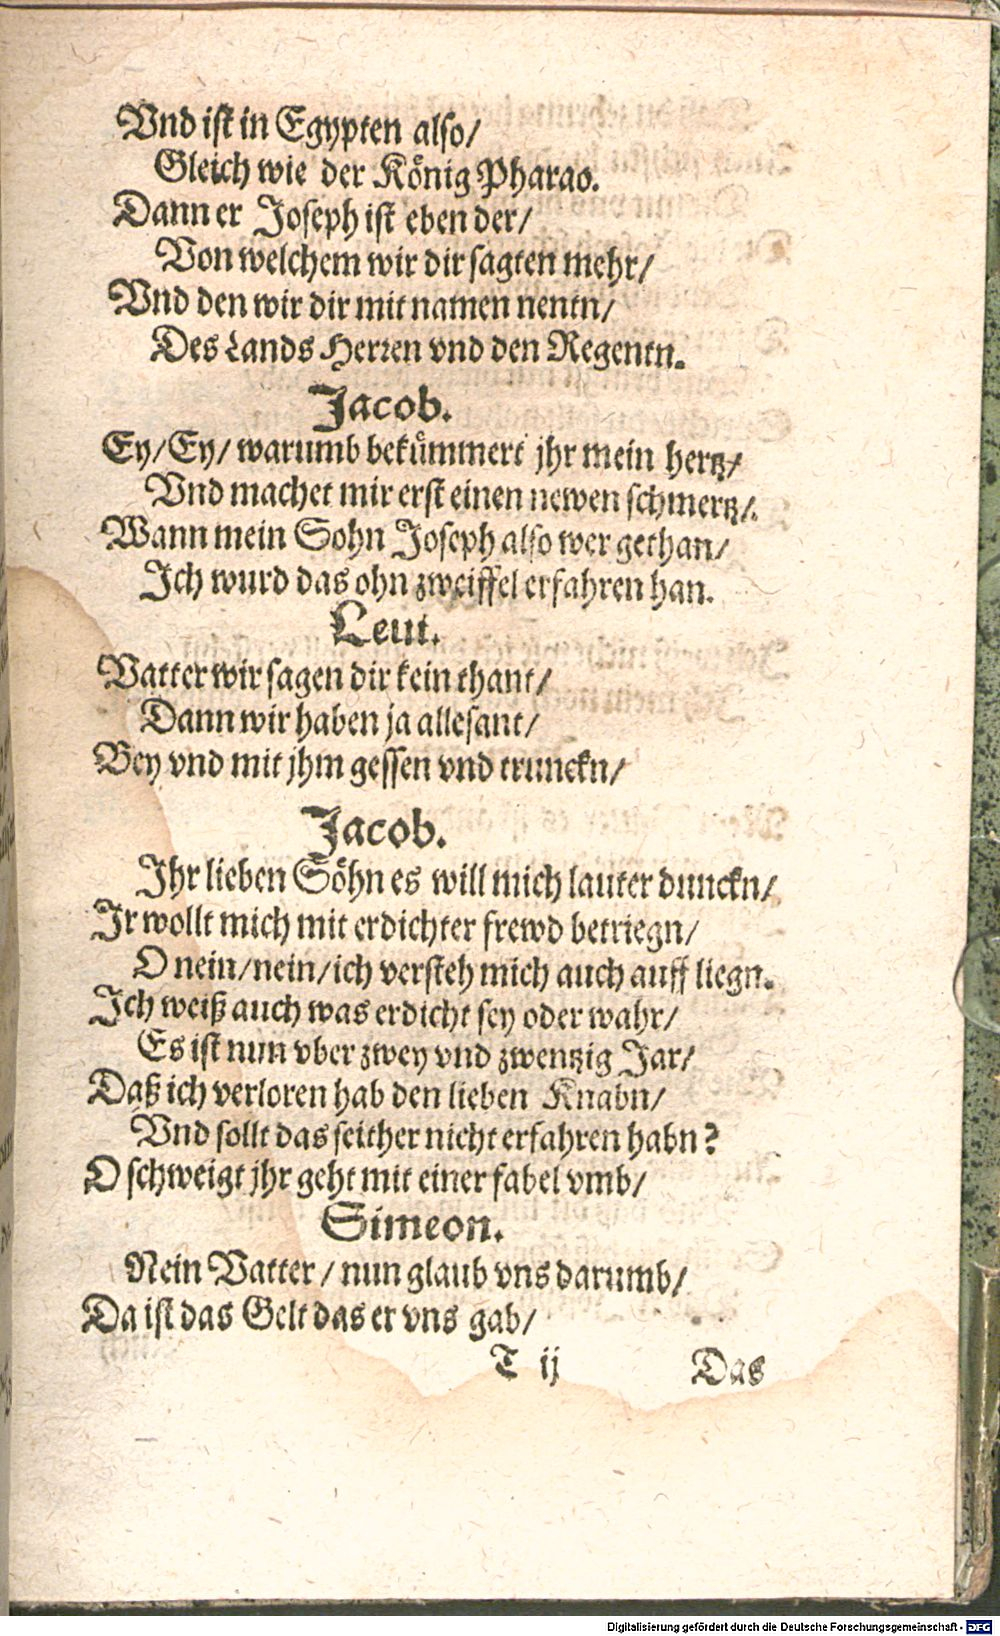 Vnd ist in Egypten also/
Gleich wie der Koͤnig Pharao.
Dann er Joseph ist eben der/
Von welchem wir dir sagten mehr/
Vnd den wir dir mit namen nentn/
Des Lands Herren vnd den Regentn.
Jacob.
Ey/Ey/ warumb bekuͤmmert jhr mein hertz/
Vnd machet mir erst einen newen schmertz/
Wann mein Sohn Joseph also wer gethan/
Ich wurd das ohn zweiffel erfahren han.
Leui.
Vatter wir sagen dir kein thant/
Dann wir haben ja allesant/
Bey vnd mit jhm gessen vnd trunckn/
Jacob.
Ihr lieben Soͤhn es will mich lauter dunckn/
Ir wollt mich mit erdichter frewd betriegn/
O nein/nein/ich versteh mich auch auff liegn.
Ich weiß auch was erdicht sey oder wahr/
Es ist nun vber zwey vnd zwentzig Jar/
Daß ich verloren hab den lieben Knabn/
Vnd sollt das seither nicht erfahren habn?
O schweigt jhr geht mit einer fabel vmb/
Simeon.
Nein Vatter/ nun glaub vns darumb/
Da ist das Gelt das er vns gab/
T ij Das
Digitalisierung gefördert durch die Deutsche Forschungsgemeinschaft - DFG